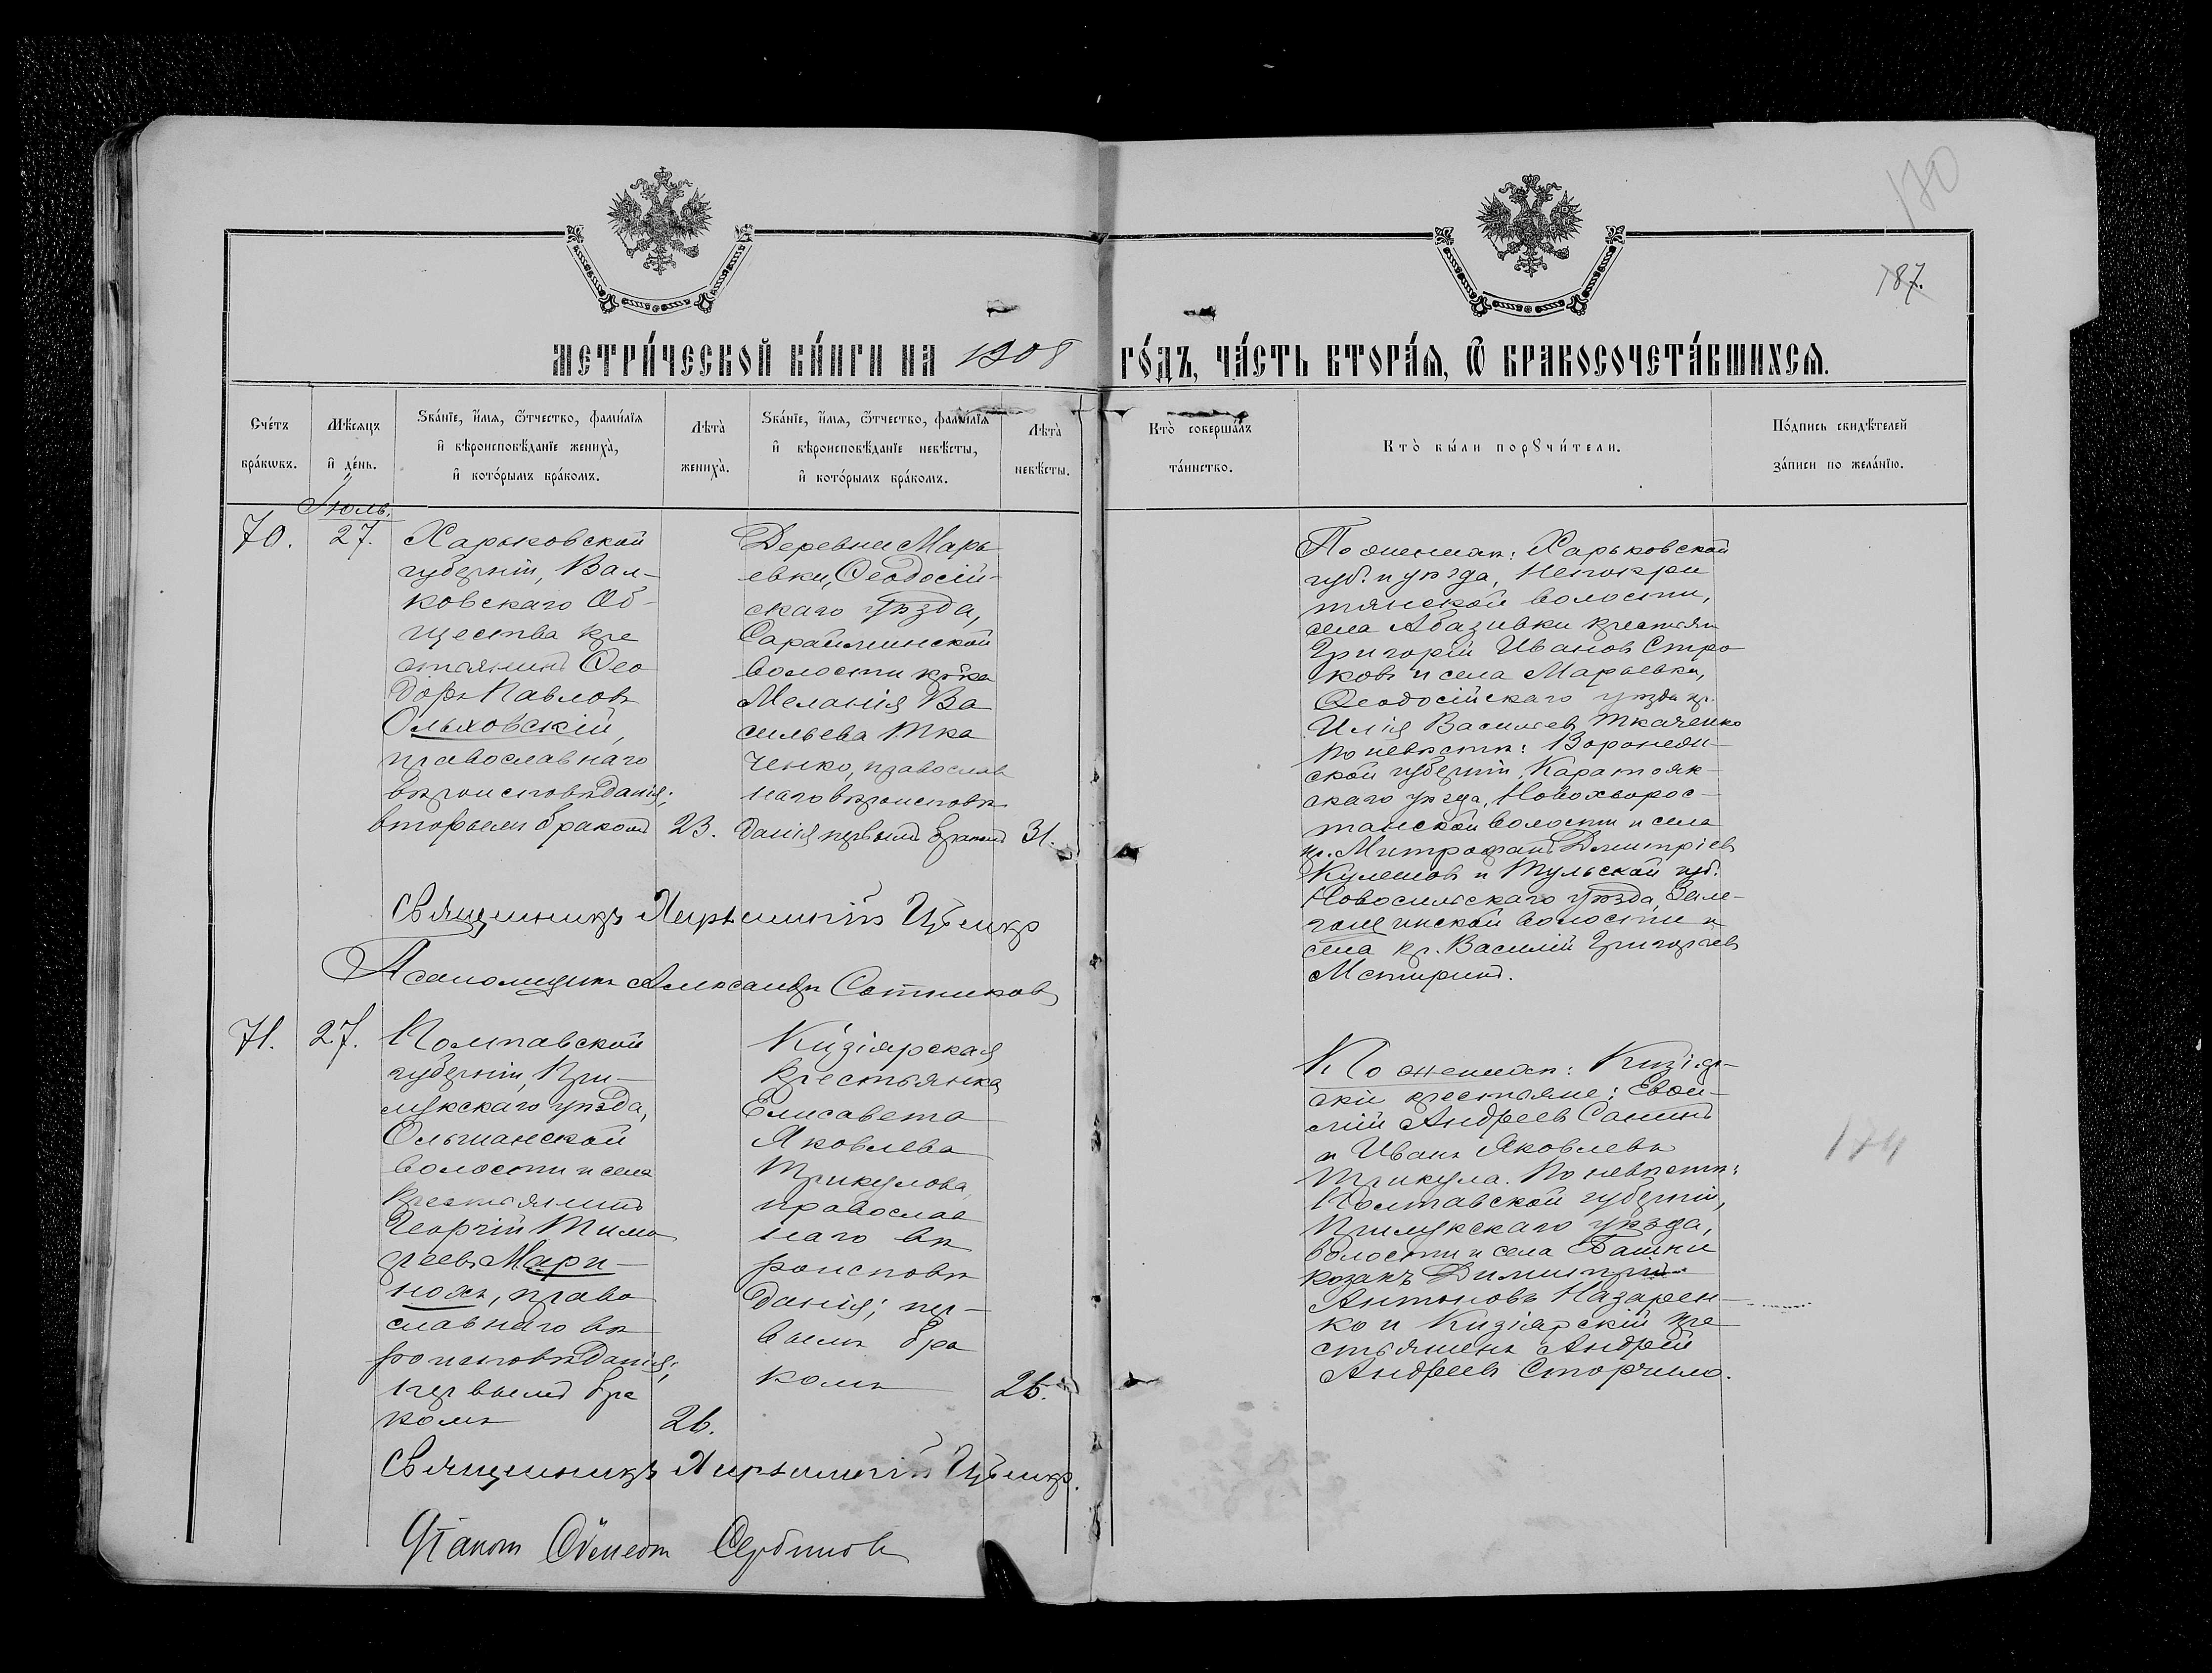 170
187.
МЕТРИ́ЧЕСКОЙ КНИ́ГИ НА 1908 ГО́ДЪ, ЧА́СТЬ ВТОРА́Я, Ѿ БРАКОСОЧЕТА́ВШИХСЯ.
Сче́тъ бра́кѡвъ.
Мѣ́сяцъ и де́нь.
Зва́нїе, и́мя, ѻ҆́тчество, фами́лїя и вѣроисповѣ́данїе жениха̀, и кото́рымъ бра́комъ.
Лѣта̀ жениха̀.
Зва́нїе, и́мя, ѻ҆́тчество, фами́лїя и вѣроисповѣ́данїе невѣ́сты, и кото́рымъ бра́комъ.
Лѣта̀ невѣ́сты.
Кто̀ соверша́лъ та́инство.
Кто̀ бы́ли порꙋчи́тели.
По́дпись свидѣ́телей за́писи по жела́нїю.
Іюль.
70.
27.
Харьковской
губерніи, Вал-
ковскаго Об-
щества кре
стьянинъ Ѳео
доръ Павловъ
Ольховскій,
православнаго
вѣроисповѣданія;
вторымъ бракомъ
23.
Деревни Марь
евки, Ѳеодосій-
скаго уѣзда,
Сарайминской
волости кр-ка
Меланія Ва
сильева Тка
ченко, православ
наго вѣроисповѣ
данія первымъ бракомъ
31.
По женихѣ: Харьковской
губ. и уѣзда,
волости,
села Абазивки крестьян
Григорій Иванов Стро
ковъ и села Марьевки,
Ѳеодосійскаго уѣзда кр.
Илія Васильев Ткаченко
По невѣстѣ: Воронеж-
ской губерніи, Каратояк-
скаго уѣзда, Новохворос-
танской волости и села
кр. Митрофанъ Димитріев
Кулешов и Тульской губ.
Новосильскаго уѣзда, Зале-
гощинской волости и
села кр. Василій Григорьев
Священникъ
Псаломщикъ Александръ Сотников
71.
27.
Полтавской
губерніи, При-
лукскаго уѣзда,
Ольшанской
волости и села
крестьянинъ
Георгій Тимо
ѳеевъ Мари-
нохъ, право
славнаго вѣ
роисповѣданія;
первымъ бра
комъ
26.
Кизіярская
крестьянка
Елисавета
Яковлева
Трикулова,
православ
наго вѣ
роисповѣ
данія; пер-
вымъ бра
комъ
26.
По женихѣ: Кизіяр-
скіе крестьяне: Евѳи-
мій Андреев Санинъ
и Иванъ Яковлевъ
Трикула. По невѣстѣ:
Полтавской губерніи,
Прилукскаго уѣзда,
волости и села
козакъ Димитрій
Антоновъ Назарен-
ко и Кизіярскій кре
стьянинъ Андрей
Андреевъ Сторчило.
174
Священникъ
Діаконъ Сербиновъ